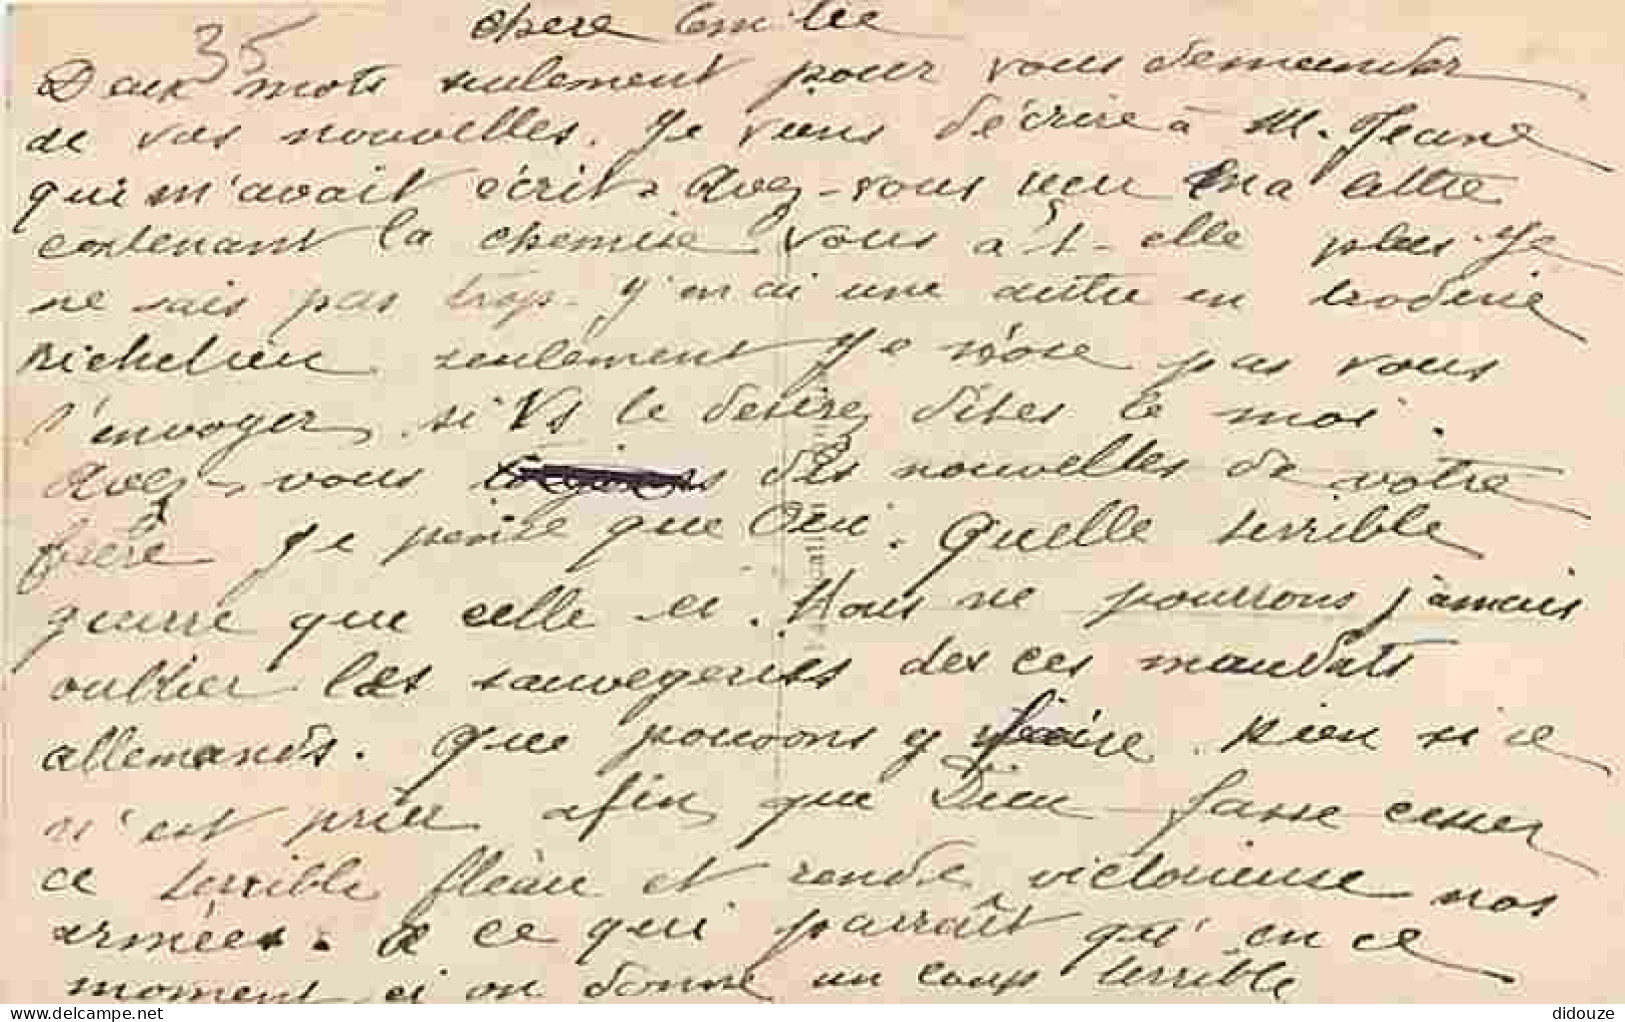 35
chere Emilie
Deux mots seulement pour vous demander
de vos nouvelles. Je viens d'écrire à M. Jeane
qui m'avait écrit. Avez-vous reçu ma lettre
contenant la chemise vous a t-elle plus. Je
ne sais pas trop. J'en ai une autre en broderie
Richelieu seulement Je n'ose pas vous
l'envoyer, si Vs le desirez dites le moi.
Avez-vous des nouvelles de votre
frère Je pense que Oui. Quelle terrible
guerre que celle ci. Nous ne pourrons jamais
oublier les sauvegeries des ces maudits
allemands. Que pouvons y faire. Rien si ce
n'est prier afin que Dieu fasse cesser
ce terrible fleau et rende victorieuse nos
armées. à ce qui parraît qu'en ce
moment ci on donne un coup terrible
didouze